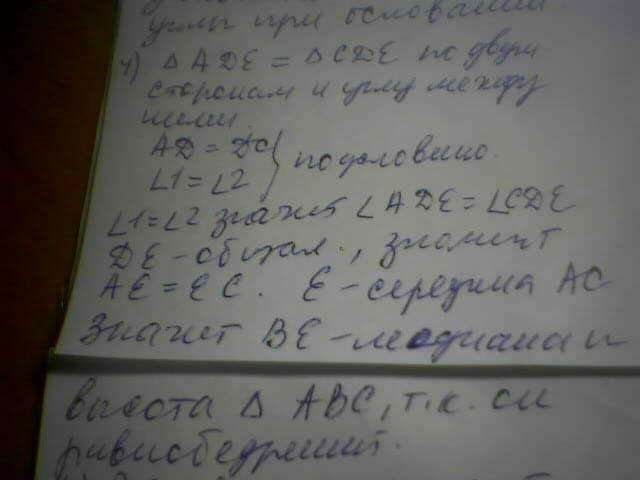 углы при основании
4) △ ADE = △ CDE по двум
сторонам и углу между
ними.
AD = DC
∠1 = ∠2 } по условию.
∠1=∠2 значит ∠ADE = ∠CDE
DE - общая, значит
AE = EC. E - середина AC
Значит BE - медиана и
высота △ ABC, т.к. он
равнобедренный.